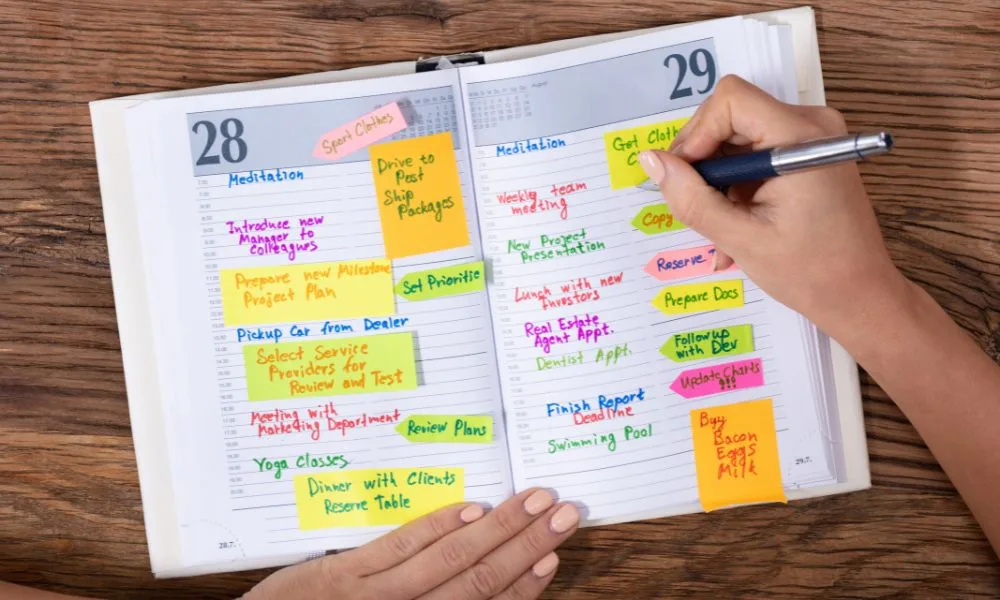 28
Sport Clothes
Meditation
Drive to
Post
Ship
Packages
Introduce new
Manager to
Colleagues
Prepare new Milestone
Project Plan
Set Prioritie
Pickup Car from Dealer
Select Service
Providers for
Review and Test
Meeting with
Marketing Department
Review Plans
Yoga Classes
Dinner with Clients
Reserve Table
28.7.
29
August
Meditation
Get
Weekly team
meeting
Copy
New Project
Presentation
Reserve
Lunch with new
Investors
Prepare Docs
Real Estate
Agent Appt.
Follow up
with Dev
Dentist Appt.
Update Charts
!!!
Finish Report
Deadline
Swimming Pool
Buy
Bacon
Eggs
Milk
29.7.